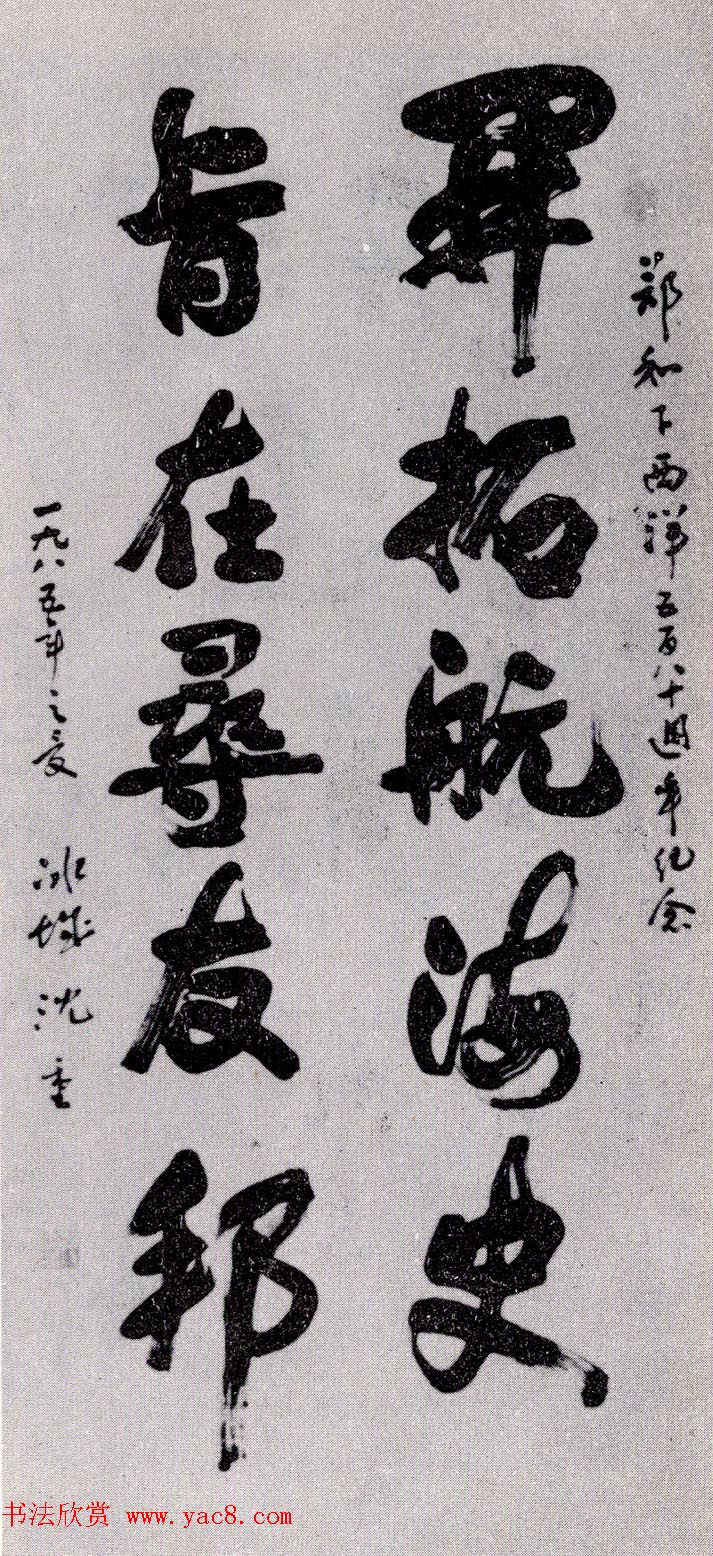 郑和下西洋五百八十週年纪念
開拓航海史
旨在尋友邦
一九八五年之夏 冰城 沈重
书法欣赏 www.yac8.com